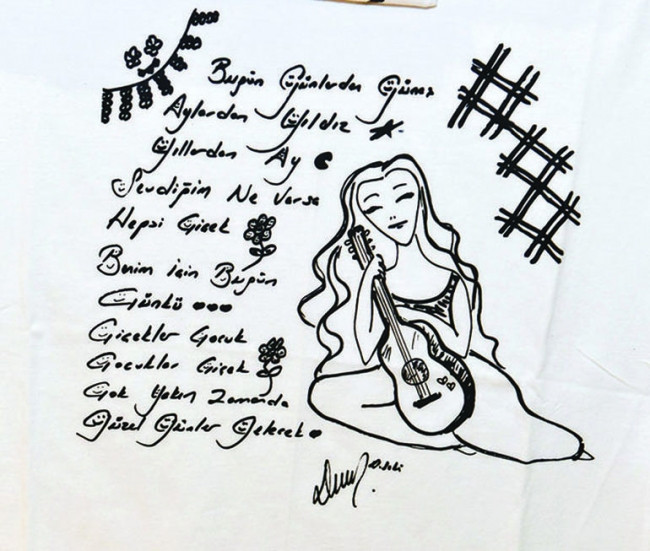 Bugün Günlerden Güneş
Aylardan Yıldız
Yıllardan Ay
Sevdiğim Ne Varsa
Hepsi Çiçek
Benim için Bugün
Çünkü ...
Çiçekler Çocuk
Çocuklar Çiçek
Çok Yakın Zamanda
Güzel Günler Gelecek